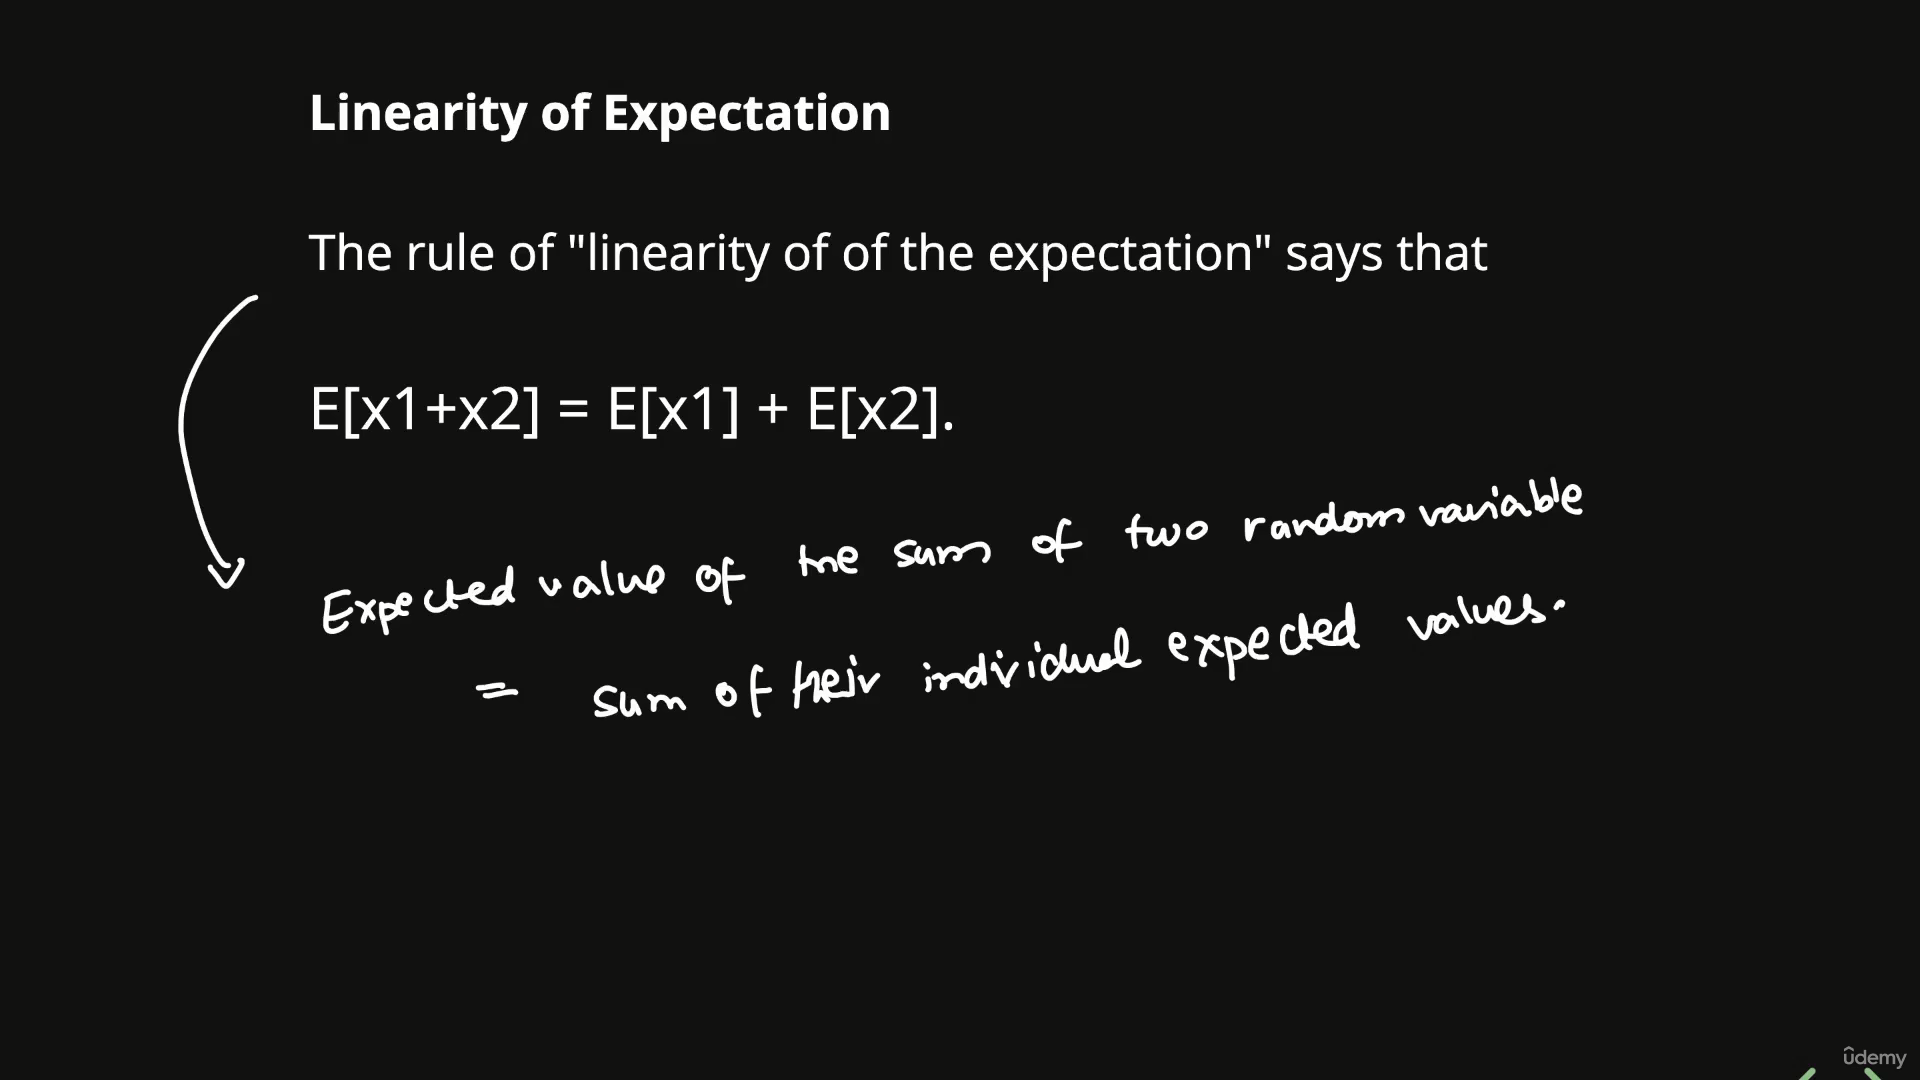 Linearity of Expectation
The rule of "linearity of of the expectation" says that
E[x1+x2] = E[x1] + E[x2].
Expected value of the sum of two random variable
= sum of their individual expected values.
ûdemy